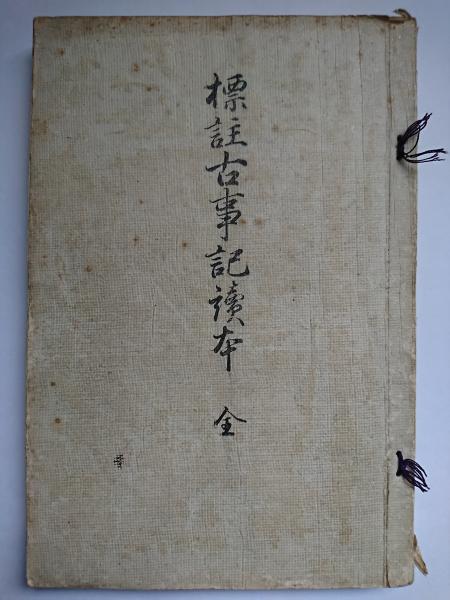 標註古事記讀本 全